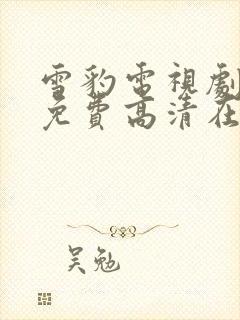 雪豹電視劇
免費高清在
吴勉